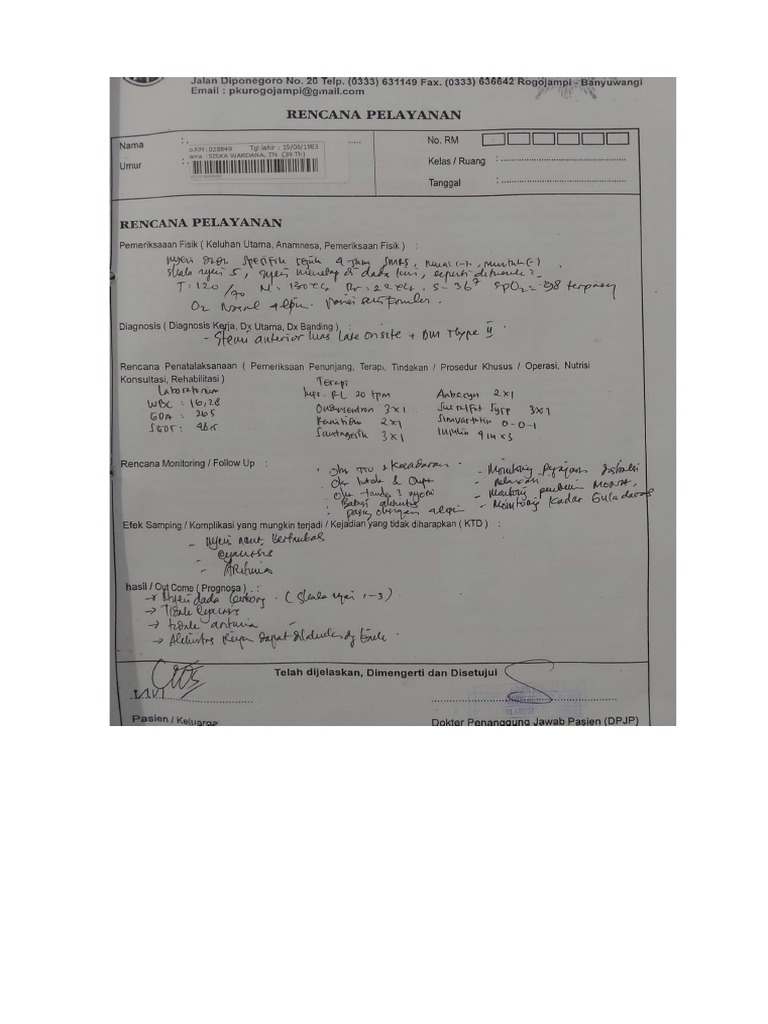 Jalan Diponegoro No. 20 Telp. (0333) 631149 Fax. (0333) 636642 Rogojampi - Banyuwangi
Email : pkurogojampi@gmail.com
RENCANA PELAYANAN
Nama :
o RM :028849 Tgl.lahir : 15/06/1983
ama :SISKA WARDANA, TN (39 Th)
Umur :
No. RM
Kelas / Ruang :
Tanggal :
RENCANA PELAYANAN
Pemeriksaaan Fisik ( Keluhan Utama, Anamnesa, Pemeriksaan Fisik ) :
nyeri specifik sejak 4 jam SMRS, mual (-), muntah (-)
skala nyeri 5, nyeri dada kiri, seperti
T = 120/70 N = 130 x/ Rr = 22 x/ S = 36 SpO2 = 98
O2 Nasal 4 lpm.
Diagnosis ( Diagnosis Kerja, Dx Utama, Dx Banding ) :
- Stemi anterior luas late onsite + DM Type II
Rencana Penatalaksanaan ( Pemeriksaan Penunjang, Terapi, Tindakan / Prosedur Khusus / Operasi, Nutrisi
Konsultasi, Rehabilitasi )
Laboratorium Terapi
WBC : 16,28 Infs. RL 20 tpm Anbacyn 2x1
GDA : 265 Ondansentron 3x1 Sucralfat Syrp 3x1
SGOT : Ranitidin 2x1 Simvastatin 0-0-1
Santagesik 3x1 Insulin 4 iu x 3
Rencana Monitoring / Follow Up :
Obs TTV & Kesadaran - Monitoring
Obs Intak & Output -
Obs tanda 2 nyeri - Monitoring pemberian
Batasi aktivitas - Monitoring Kadar Gula darah
pasang oksigen 4 lpm
Efek Samping / Komplikasi yang mungkin terjadi / Kejadian yang tidak diharapkan ( KTD ) :
- Nyeri bertambah
- cyanosis
- ARitmia
hasil / Out Come ( Prognosa ) :
→ Nyeri dada (Skala nyeri 1-3)
→ Tidak
→ tidak aritmia
→ Aktivitas dapat dilakukan
Telah dijelaskan, Dimengerti dan Disetujui
Pasien / Keluarga
Dokter Penanggung Jawab Pasien (DPJP)